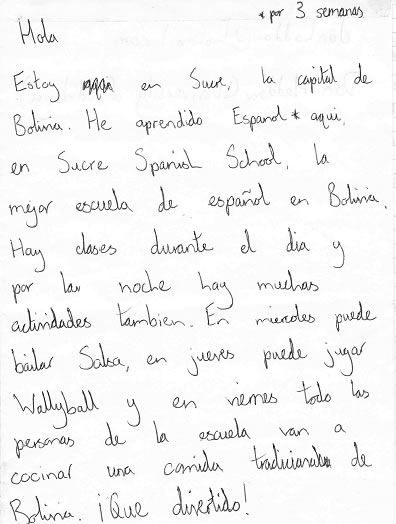 * por 3 semanas
Hola
Estoy en Sucre, la capital de
Bolivia. He aprendido Espanol * aqui,
en Sucre Spanish School, la
mejor escuela de español en Bolivia.
Hay clases durante el dia y
por la noche hay muchas
actividades tambien. En miercoles puede
bailar Salsa, en jueves puede jugar
Wallyball y en viernes todo las
personas de la escuela van a
cocinar una comida tradicional de
Bolivia. ¡Que divertido!